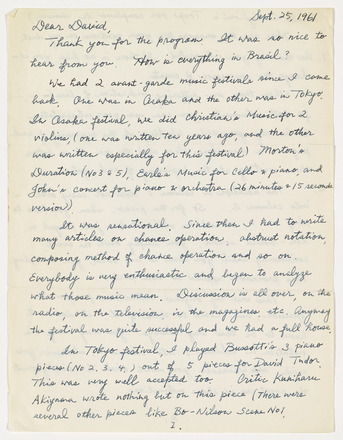 Sept. 25, 1961
Dear David,
Thank you for the program. It was so nice to
hear from you. How is everything in Brasil?
We had 2 avant-garde music festivals since I came
back. One was in Osaka and the other was in Tokyo.
In Osaka festival, we did Christian's Music for 2
violins, (one was written ten years ago, and the other
was written especially for this festival) Morton's
Duration (No 3 & 5), Earle's Music for Cello & piano, and
John's concert for piano & orchestra (26 minutes & 15 seconds
version).
It was sensational. Since then I had to write
many articles on chance operation, abstract notation,
composing method of chance operation and so on.
Everybody is very enthusiastic and began to analyze
what those music mean. Discussion is all over, on the
radio, on the television, in the magazines etc. Anyway
the festival was quite successful and we had a full house.
In Tokyo festival, I played Bussotti's 3 piano
pieces (No 2, 3, 4,) out of 5 pieces for David Tudor.
This was very well accepted too. Critic Kuniharu
Akiyama wrote nothing but on this piece (There were
several other pieces like Bo-Nilson Scene No1,
1.